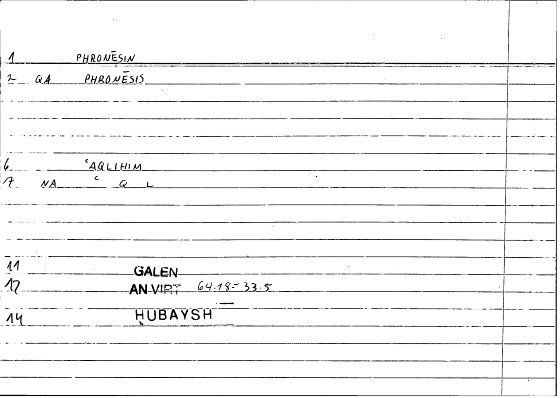 1 PHRONĒSIN
2 QA PHRONĒSIS
6 ʿAQLIHIM
7 NA ʿ Q L
11 GALEN
12 AN.VIRT 64.18=33.5
14 ḤUBAYSH